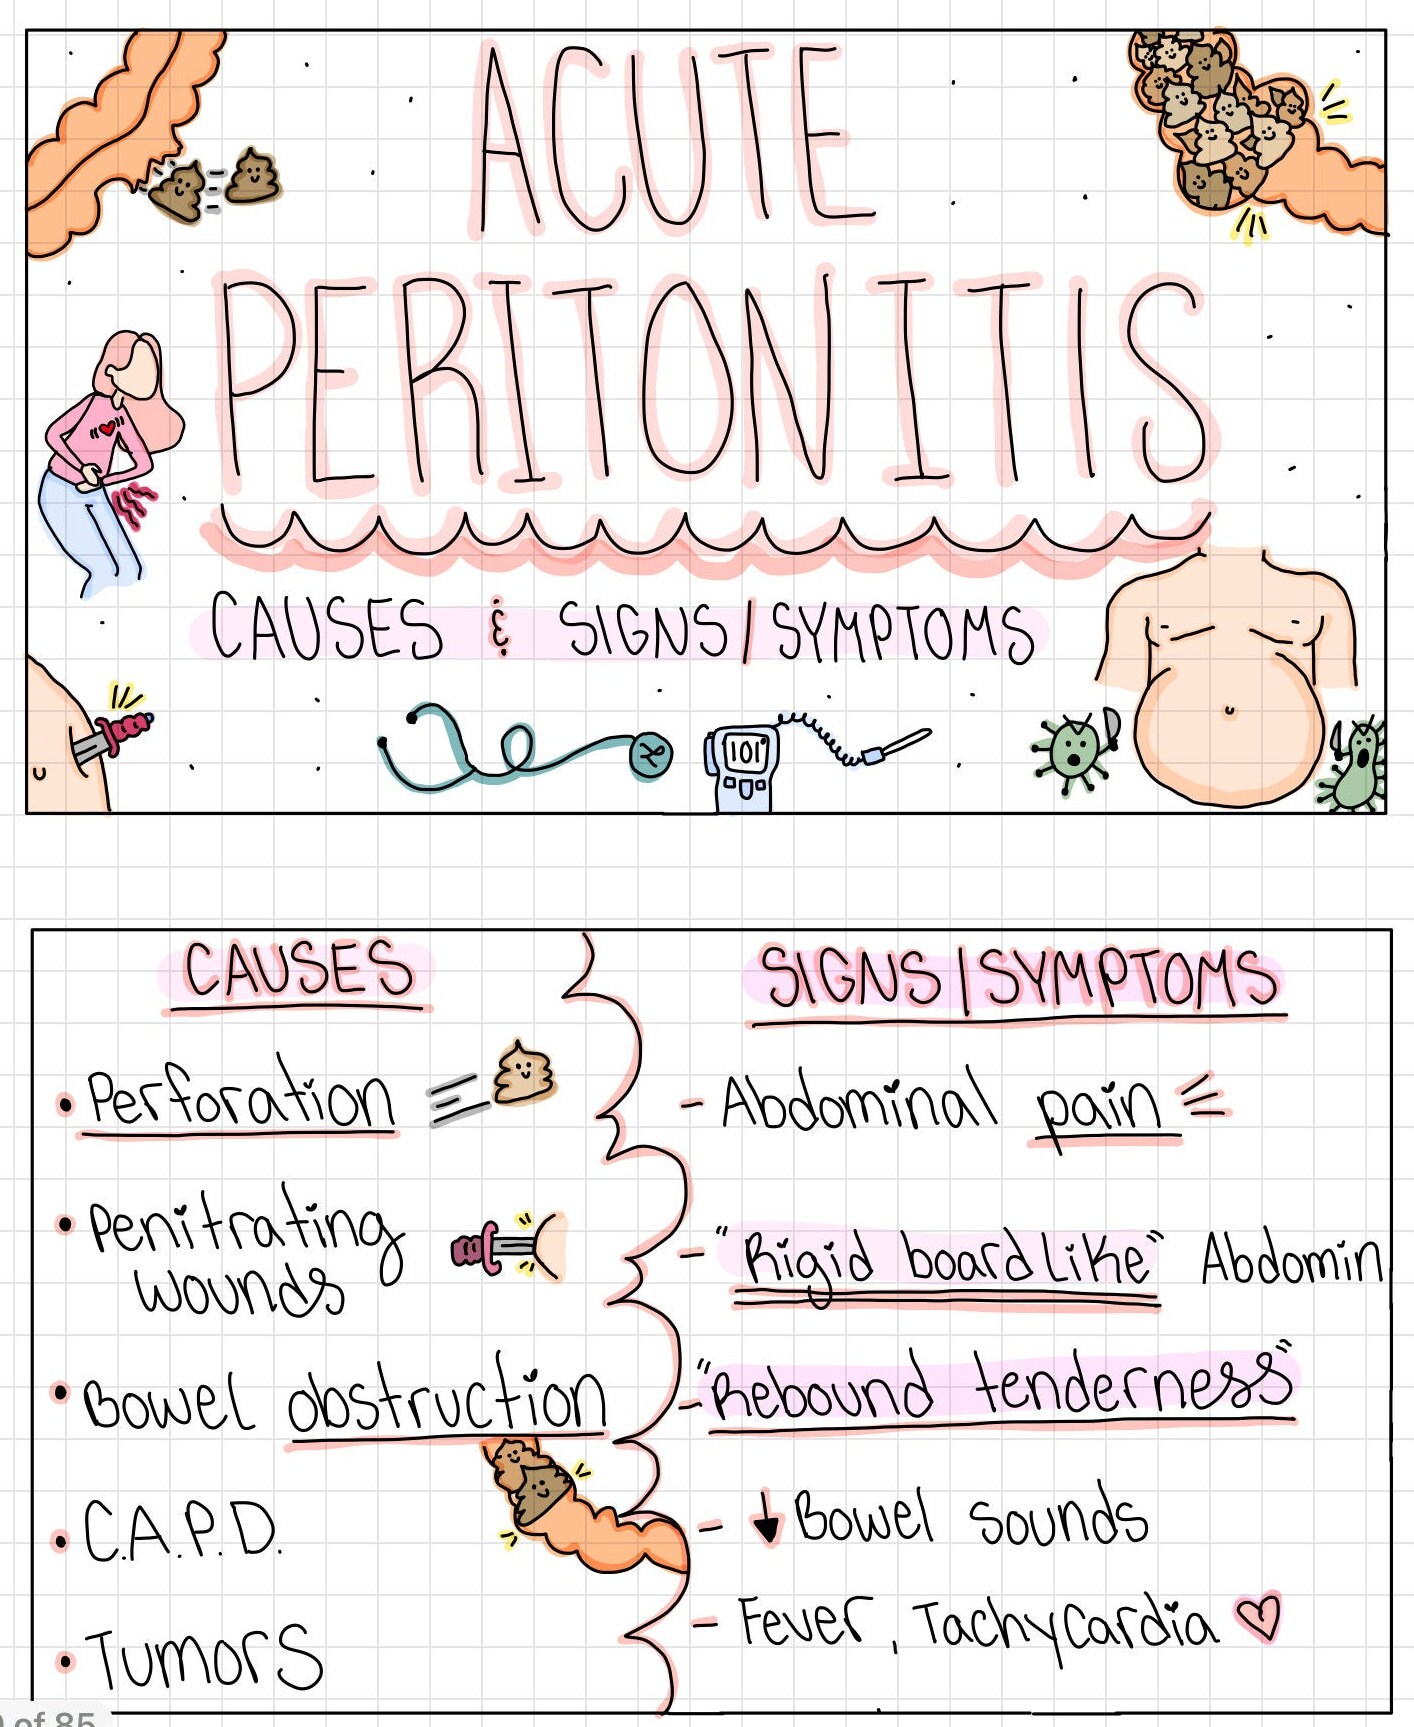 ACUTE
PERITONITIS
CAUSES & SIGNS/SYMPTOMS
101
CAUSES
• Perforation
• Penitrating
wounds
• Bowel obstruction
• C.A.P.D.
• Tumors
SIGNS/SYMPTOMS
- Abdominal pain
- "Rigid board Like" Abdomin
- "Rebound tenderness"
- ↓ Bowel sounds
- Fever, Tachycardia ♡
of 85